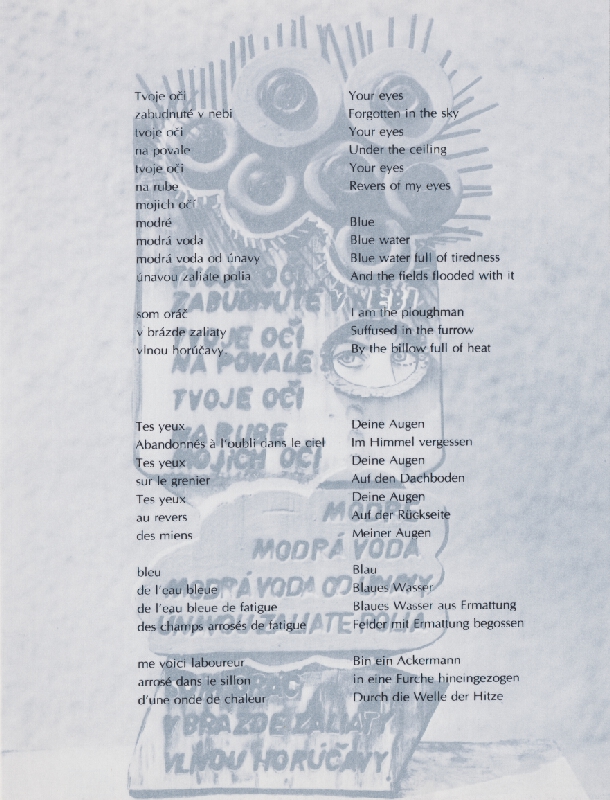 Tvoje oči
zabudnuté v nebi
tvoje oči
na povale
tvoje oči
na rube
mojich očí
modré
modrá voda
modrá voda od únavy
únavou zaliate polia
som oráč
v brázde zaliaty
vlnou horúčavy
Your eyes
Forgotten in the sky
Your eyes
Under the ceiling
Your eyes
Revers of my eyes
Blue
Blue water
Blue water full of tiredness
And the fields flooded with it
I am the ploughman
Suffused in the furrow
By the billow full of heat
Tes yeux
Abandonnés à l'oubli dans le ciel
Tes yeux
sur le grenier
Tes yeux
au revers
des miens
bleu
de l'eau bleue
de l'eau bleue de fatigue
des champs arrosés de fatigue
me voici laboureur
arrosé dans le sillon
d'une onde de chaleur
Deine Augen
Im Himmel vergessen
Deine Augen
Auf den Dachboden
Deine Augen
Auf der Rückseite
Meiner Augen
Blau
Blaues Wasser
Blaues Wasser aus Ermattung
Felder mit Ermattung begossen
Bin ein Ackermann
in eine Furche hineingezogen
Durch die Welle der Hitze
TVOJE OČI
ZABUDNUTÉ V NEBI
TVOJE OČI
NA POVALE
TVOJE OČI
NA RUBE
MOJICH OČÍ
MODRÉ
MODRÁ VODA
MODRÁ VODA OD ÚNAVY
ÚNAVOU ZALIATE POLIA
SOM ORÁČ
V BRÁZDE ZALIATY
VLNOU HORÚČAVY